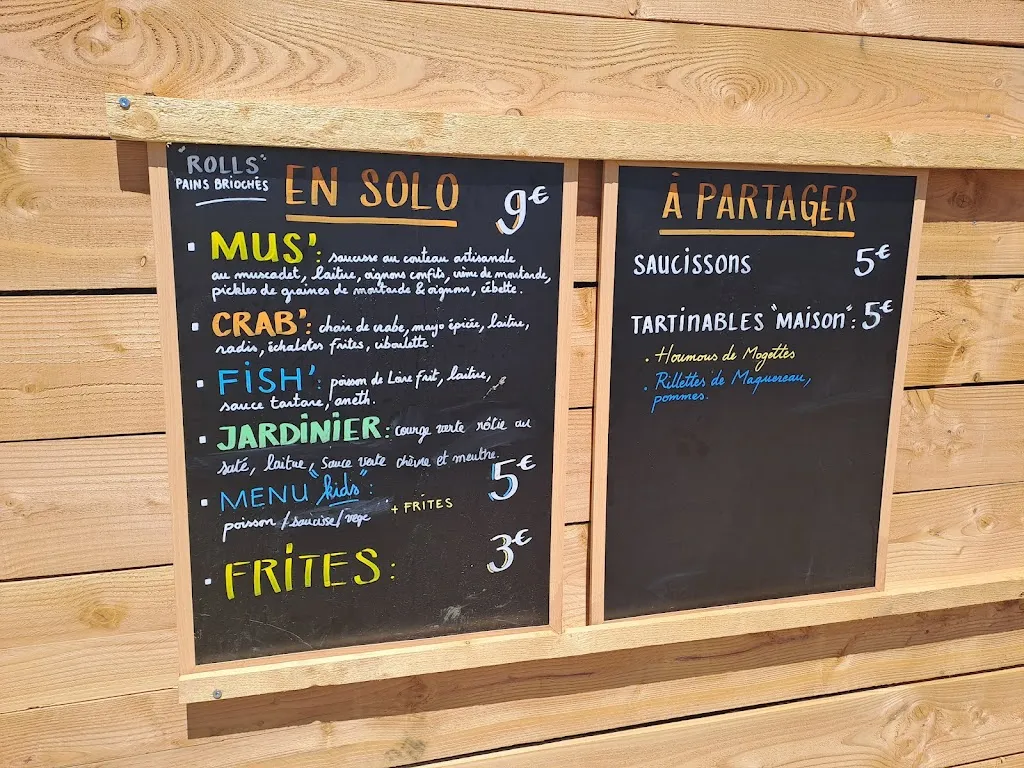 "ROLLS"
PAINS BRIOCHÉS
EN SOLO
9€
MUS': saucisse au couteau artisanale
au muscadet, laitue, oignons confits, crème de moutarde,
pickles de graines de moutarde & oignons, cébette.
CRAB': chair de crabe, mayo épicée, laitue,
radis, échalotes frites, ciboulette.
FISH': poisson de Loire frit, laitue,
sauce tartare, aneth.
JARDINIER: courge verte rôtie au
saté, laitue, sauce verte chèvre et menthe.
MENU "kids":
5€
poisson / saucisse / végé + FRITES
FRITES:
3€
À PARTAGER
SAUCISSONS 5€
TARTINABLES "MAISON": 5€
. Houmous de Mogettes
. Rillettes de Maquereau,
pommes.